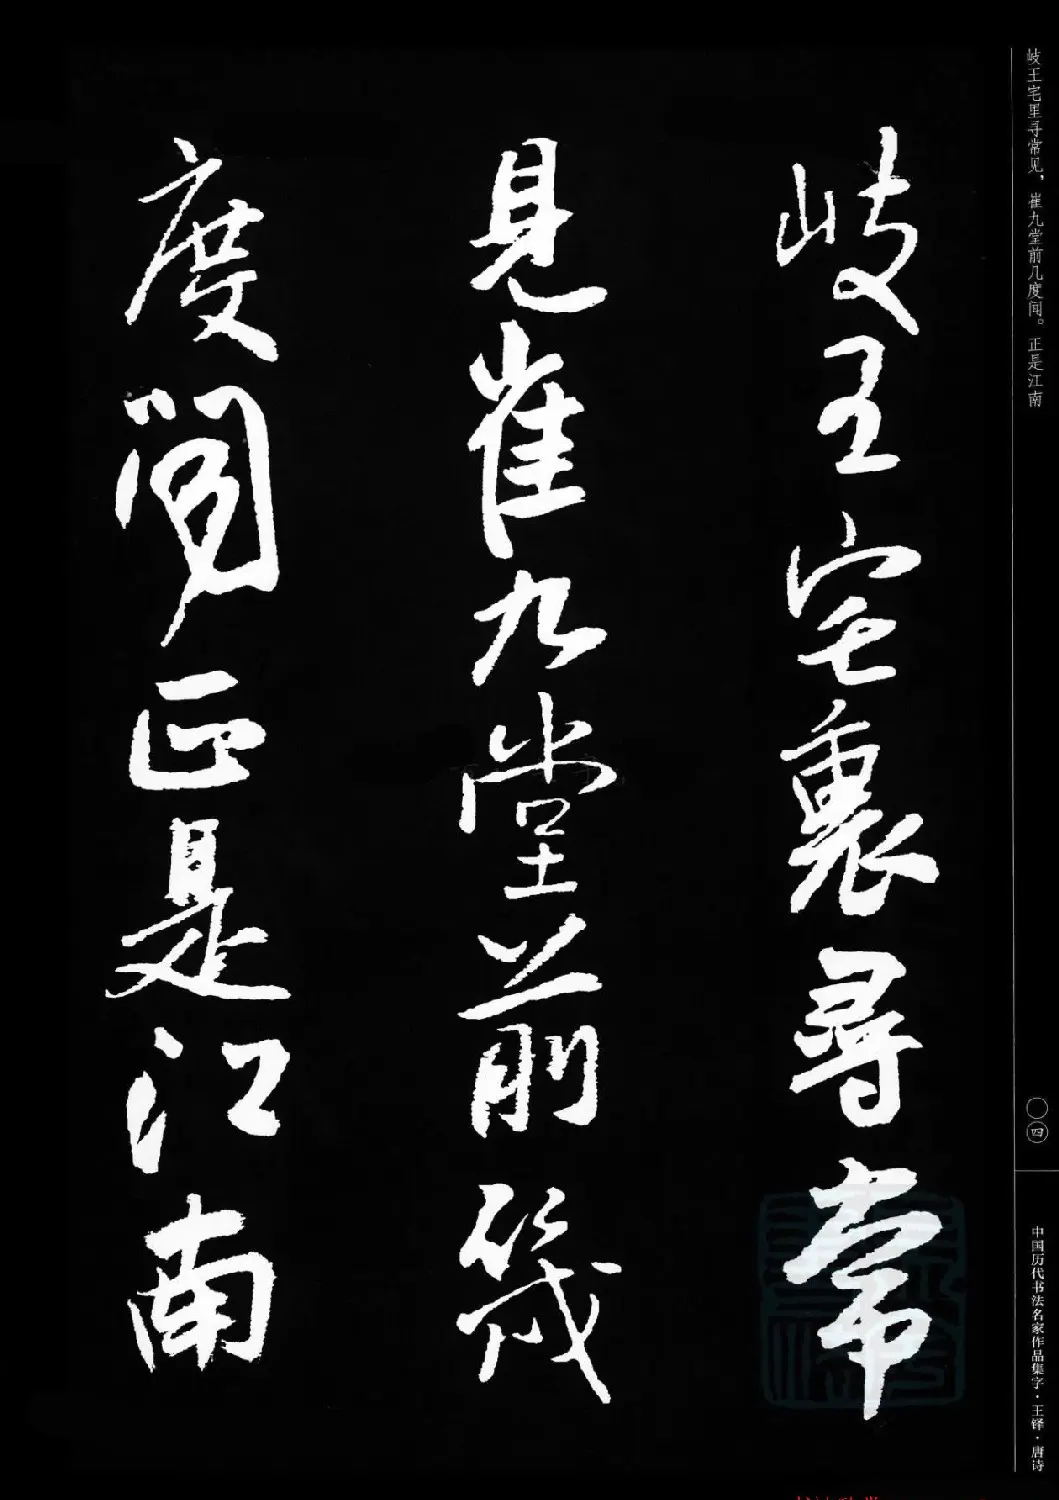 岐王宅里寻常见，崔九堂前几度闻。正是江南
岐王宅裏尋常
見崔九堂前幾
度聞正是江南
〇四
中国历代书法名家作品集字·王铎·唐诗